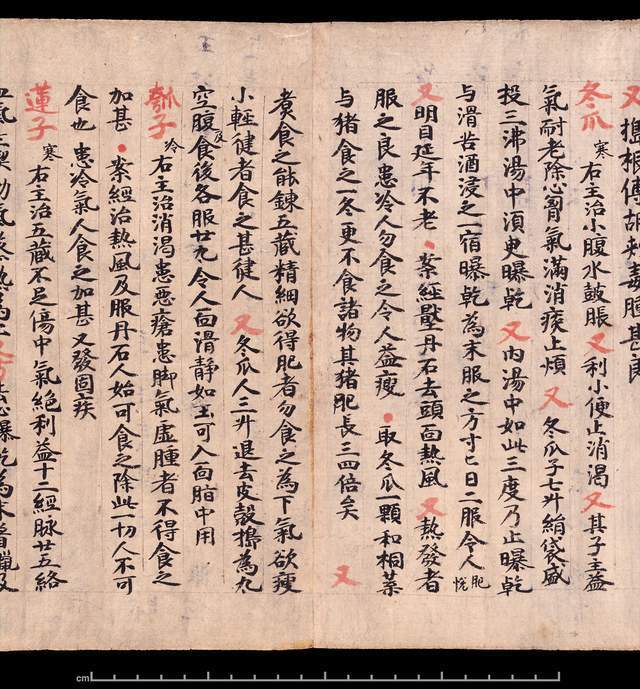 又擣根傅胡刺毒腫甚良
冬瓜寒右主治小腹水鼓脹又利小便止消渴又其子主益
氣耐老除心胷氣滿消痰止煩又冬瓜子七升絹袋盛
投三沸湯中湏臾曝乾又內湯中如此三度乃止曝乾
与清苦酒浸之一宿曝乾為末服之方寸匕日二服令人肥悅
又明目延年不老案經壓丹石去頭面熱風又熱發者
服之良患冷人勿食之令人益瘦取冬瓜一顆和桐葉
与猪食之一冬更不食諸物其猪肥長三四倍矣又
煑食之能鍊五藏精細欲得肥者勿食之為下氣欲瘦
小輕健者食之甚健人又冬瓜人三升退去皮殼擣為丸
空腹及食後各服廿丸令人面滑静如玉可入面脂中用
瓠子冷右主治消渴患惡瘡患脚氣虛腫者不得食之
加甚案經治熱風及服丹石人始可食之除此一切人不可
食也患冷氣人食之加甚又發固疾
蓮子寒右主治五藏不足傷中氣絕利益十二經脉廿五絡
血氣生喫動氣蒸熱為上又方去心曝乾為末着蠟及
cm